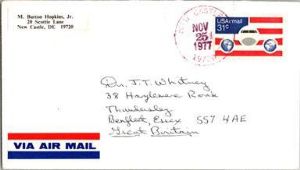 M. Burton Hopkins, Jr.
20 Seattle Lane
New Castle, DE 19720
NOV
25
1977
USAirmail
31c
Dr. J. T. Whitney
38
Thundersley
Benfleet, Essex SS7 4AE
Great Britain
VIA AIR MAIL